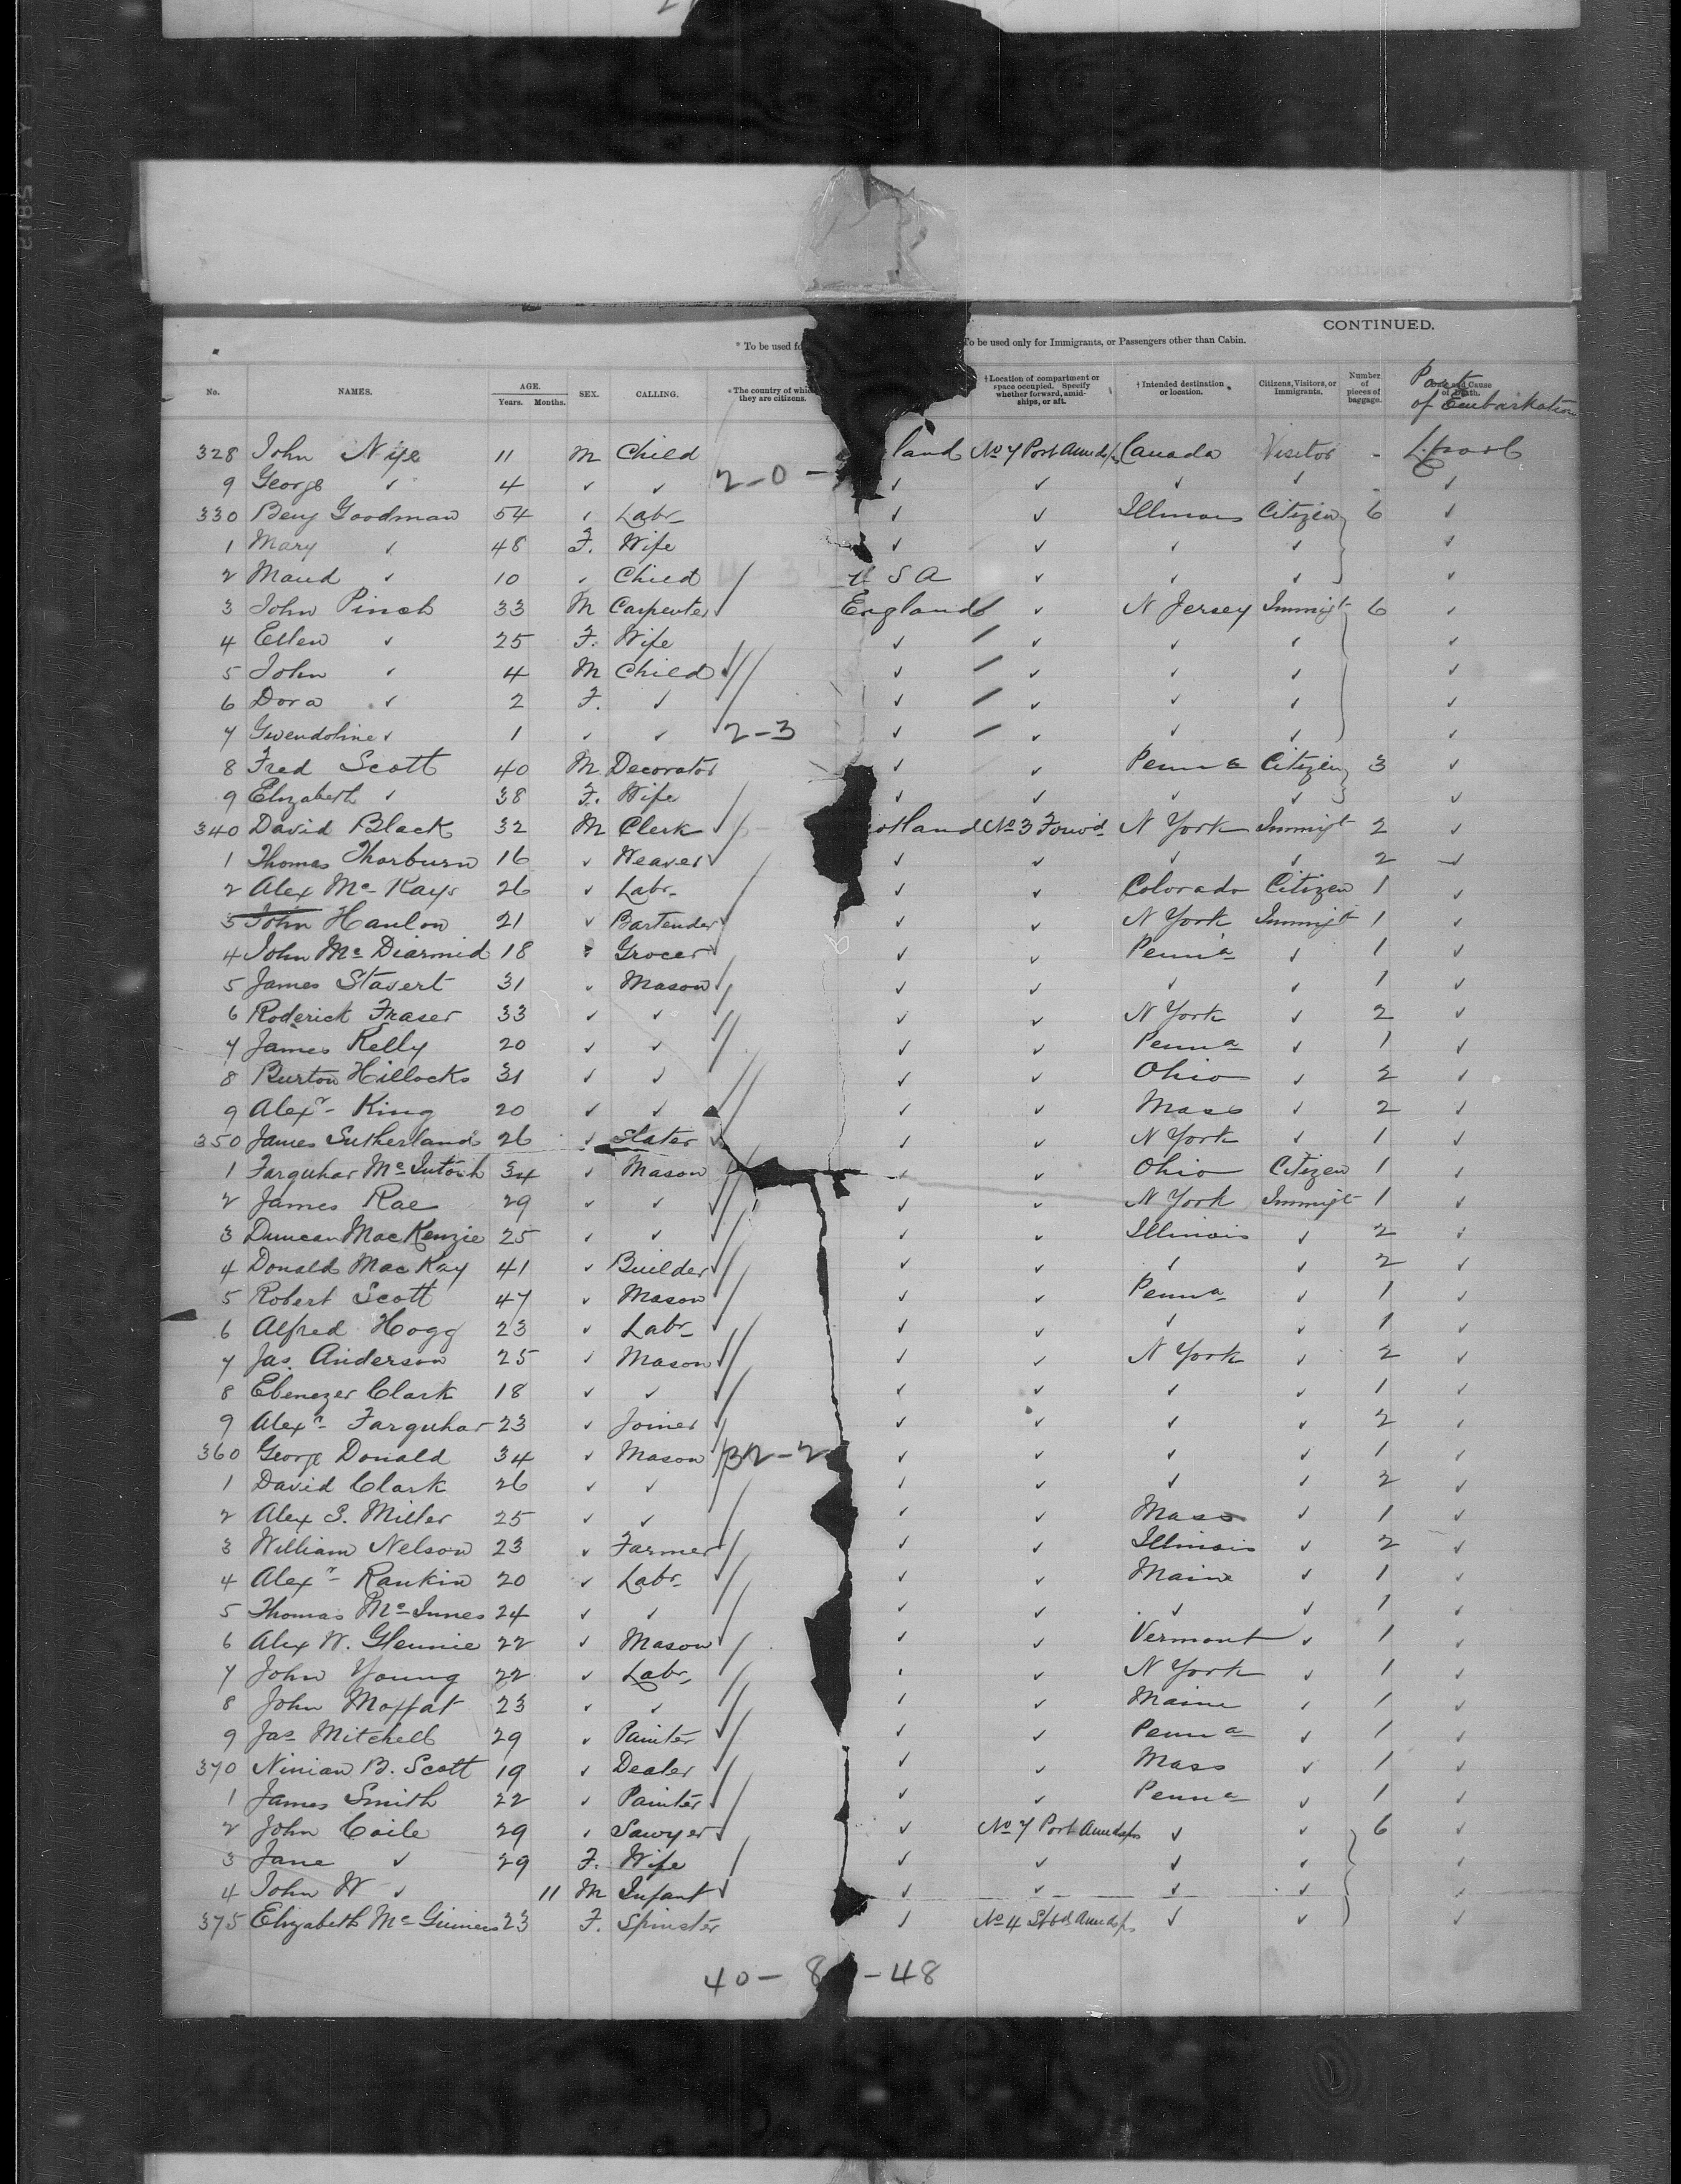 CONTINUED.
* To be used fo To be used only for Immigrants, or Passengers other than Cabin.
No. NAMES. AGE. Years. Months. SEX. CALLING. * The country of which they are citizens. † Location of compartment or space occupied. Specify whether forward, amidships, or aft. † Intended destination or location. Citizens, Visitors, or Immigrants. Number of pieces of baggage. Port of Embarkation
328 John 11 M Child land No 7 Port Amidps Canada Visitor - L.pool
9 George ✓ 4 ✓ ✓ 2-0- ✓ ✓ ✓ ✓ - ✓
330 Benj Goodman 54 ✓ Labr ✓ ✓ Illinois Citizen 6 ✓
1 Mary ✓ 48 F. Wife ✓ ✓ ✓ ✓ ✓
2 Maud ✓ 10 ✓ Child U S A ✓ ✓ ✓ ✓
3 John Pinch 33 M Carpenter England ✓ N Jersey Immigt 6 ✓
4 Ellen ✓ 25 F. Wife ✓ ✓ ✓ ✓ ✓
5 John ✓ 4 M Child ✓ ✓ ✓ ✓ ✓
6 Dora ✓ 2 F. ✓ ✓ ✓ ✓ ✓ ✓
7 Gwendoline ✓ 1 ✓ ✓ 2-3 ✓ ✓ ✓ ✓ ✓
8 Fred Scott 40 M Decorator ✓ ✓ Penna Citizen 3 ✓
9 Elizabeth ✓ 38 F. Wife ✓ ✓ ✓ ✓ ✓
340 David Black 32 M Clerk otland No 3 Forwd N York Immigt 2 ✓
1 Thomas Thorburn 16 ✓ Weaver ✓ ✓ ✓ ✓ 2 ✓
2 Alex Mc Kay 26 ✓ Labr ✓ ✓ Colorado Citizen 1 ✓
3 John Hanlon 21 ✓ Bartender ✓ ✓ N York Immigt 1 ✓
4 John Mc Diarmid 18 ✓ Grocer ✓ ✓ Penna ✓ 1 ✓
5 James Stavert 31 ✓ Mason ✓ ✓ ✓ ✓ 1 ✓
6 Roderick Fraser 33 ✓ ✓ ✓ ✓ N York ✓ 2 ✓
7 James Kelly 20 ✓ ✓ ✓ ✓ Penna ✓ 1 ✓
8 Burton Hillocks 31 ✓ ✓ ✓ ✓ Ohio ✓ 2 ✓
9 Alexr King 20 ✓ ✓ ✓ ✓ Mass ✓ 2 ✓
350 James Sutherland 26 ✓ Slater ✓ ✓ N York ✓ 1 ✓
1 Farquhar Mc Intosh 34 ✓ Mason ✓ ✓ Ohio Citizen 1 ✓
2 James Rae 29 ✓ ✓ ✓ ✓ N York Immigt 1 ✓
3 Duncan MacKenzie 25 ✓ ✓ ✓ ✓ Illinois ✓ 2 ✓
4 Donald Mac Kay 41 ✓ Builder ✓ ✓ ✓ ✓ 2 ✓
5 Robert Scott 47 ✓ Mason ✓ ✓ Penna ✓ 1 ✓
6 Alfred Hogg 23 ✓ Labr ✓ ✓ ✓ ✓ 1 ✓
7 Jas. Anderson 25 ✓ Mason ✓ ✓ N York ✓ 2 ✓
8 Ebenezer Clark 18 ✓ ✓ ✓ ✓ ✓ ✓ 1 ✓
9 Alexr Farquhar 23 ✓ Joiner ✓ ✓ ✓ ✓ 2 ✓
360 George Donald 34 ✓ Mason 32-2 ✓ ✓ ✓ ✓ 1 ✓
1 David Clark 26 ✓ ✓ ✓ ✓ ✓ ✓ 2 ✓
2 Alex S. Miller 25 ✓ ✓ ✓ ✓ Mass ✓ 1 ✓
3 William Nelson 23 ✓ Farmer ✓ ✓ Illinois ✓ 2 ✓
4 Alexr Rankin 20 ✓ Labr ✓ ✓ Maine ✓ 1 ✓
5 Thomas Mc Innes 24 ✓ ✓ ✓ ✓ ✓ ✓ 1 ✓
6 Alex W. Glennie 22 ✓ Mason ✓ ✓ Vermont ✓ 1 ✓
7 John Young 22 ✓ Labr ✓ ✓ N York ✓ 1 ✓
8 John Moffat 23 ✓ ✓ ✓ ✓ Maine ✓ 1 ✓
9 Jas Mitchell 29 ✓ Painter ✓ ✓ Penna ✓ 1 ✓
370 Ninian B. Scott 19 ✓ Dealer ✓ ✓ Mass ✓ 1 ✓
1 James Smith 22 ✓ Painter ✓ ✓ Penna ✓ 1 ✓
2 John Coile 29 ✓ Sawyer ✓ No 7 Port Amidps ✓ ✓ 6 ✓
3 Jane ✓ 29 F. Wife ✓ ✓ ✓ ✓ ✓
4 John W ✓ 11 M Infant ✓ ✓ ✓ ✓ ✓
375 Elizabeth Mc Guiness 23 F. Spinster ✓ No 4 Stbd Amidps ✓ ✓ ✓
40 - 8 - 48